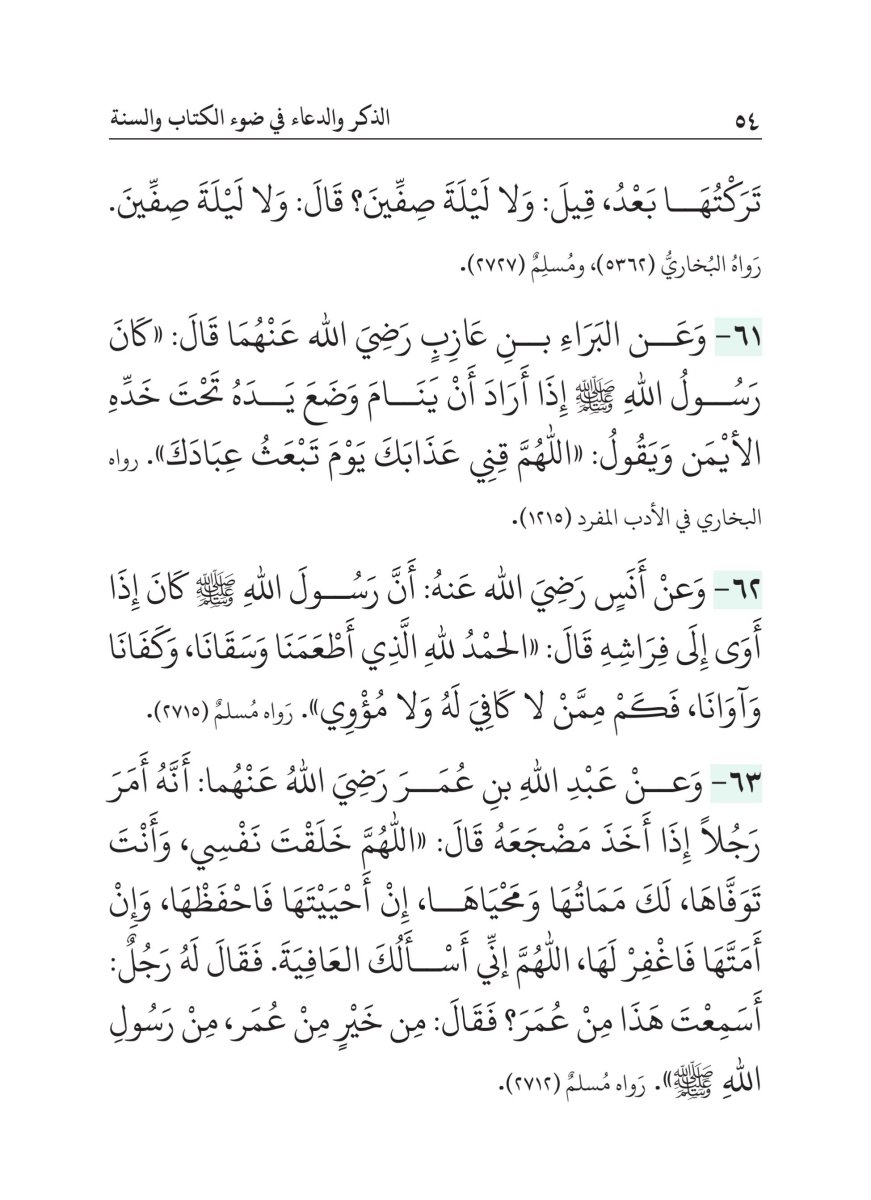 ٥٤ الذكر والدعاء في ضوء الكتاب والسنة
تَرَكْتُهَـــا بَعْدُ، قِيلَ: وَلا لَيْلَةَ صِفِّينَ؟ قَالَ: وَلا لَيْلَةَ صِفِّينَ.
رَواهُ البُخاريُّ (٥٣٦٢)، ومُسلِمٌ (٢٧٢٧).
٦١- وَعَـــن البَرَاءِ بـــنِ عَازِبٍ رَضِيَ الله عَنْهُمَا قَالَ: «كَانَ
رَسُـــولُ اللهِ ﷺ إِذَا أَرَادَ أَنْ يَنَـــامَ وَضَعَ يَـــدَهُ تَحْتَ خَدِّهِ
الأيْمَن وَيَقُولُ: «اللَّهُمَّ قِنِي عَذَابَكَ يَوْمَ تَبْعَثُ عِبَادَكَ». رواه
البخاري في الأدب المفرد (١٢١٥).
٦٢- وَعنْ أَنَسٍ رَضِيَ الله عَنهُ: أَنَّ رَسُـــولَ اللهِ ﷺ كَانَ إِذَا
أَوَى إِلَى فِرَاشِهِ قَالَ: «الحمْدُ للهِ الَّذِي أَطْعَمَنَا وَسَقَانَا، وَكَفَانَا
وَآوَانَا، فَكَمْ مِمَّنْ لا كَافِيَ لَهُ وَلا مُؤْوِي». رَواه مُسلمٌ (٢٧١٥).
٦٣- وَعـــنْ عَبْدِ اللهِ بنِ عُمَـــرَ رَضِيَ اللهُ عَنْهُما: أَنَّهُ أَمَرَ
رَجُلاً إِذَا أَخَذَ مَضْجَعَهُ قَالَ: «اللَّهُمَّ خَلَقْتَ نَفْسِي، وَأَنْتَ
تَوَفَّاهَا، لَكَ مَمَاتُهَا وَمَحْيَاهَـــا، إِنْ أَحْيَيْتَهَا فَاحْفَظْهَا، وَإِنْ
أَمَتَّهَا فَاغْفِرْ لَهَا، اللَّهُمَّ إنِّي أَسْـــأَلُكَ العَافِيَةَ. فَقَالَ لَهُ رَجُلٌ:
أَسَمِعْتَ هَذَا مِنْ عُمَرَ؟ فَقَالَ: مِن خَيْرٍ مِنْ عُمَر، مِنْ رَسُولِ
اللهِ ﷺ». رَواه مُسلمٌ (٢٧١٢).